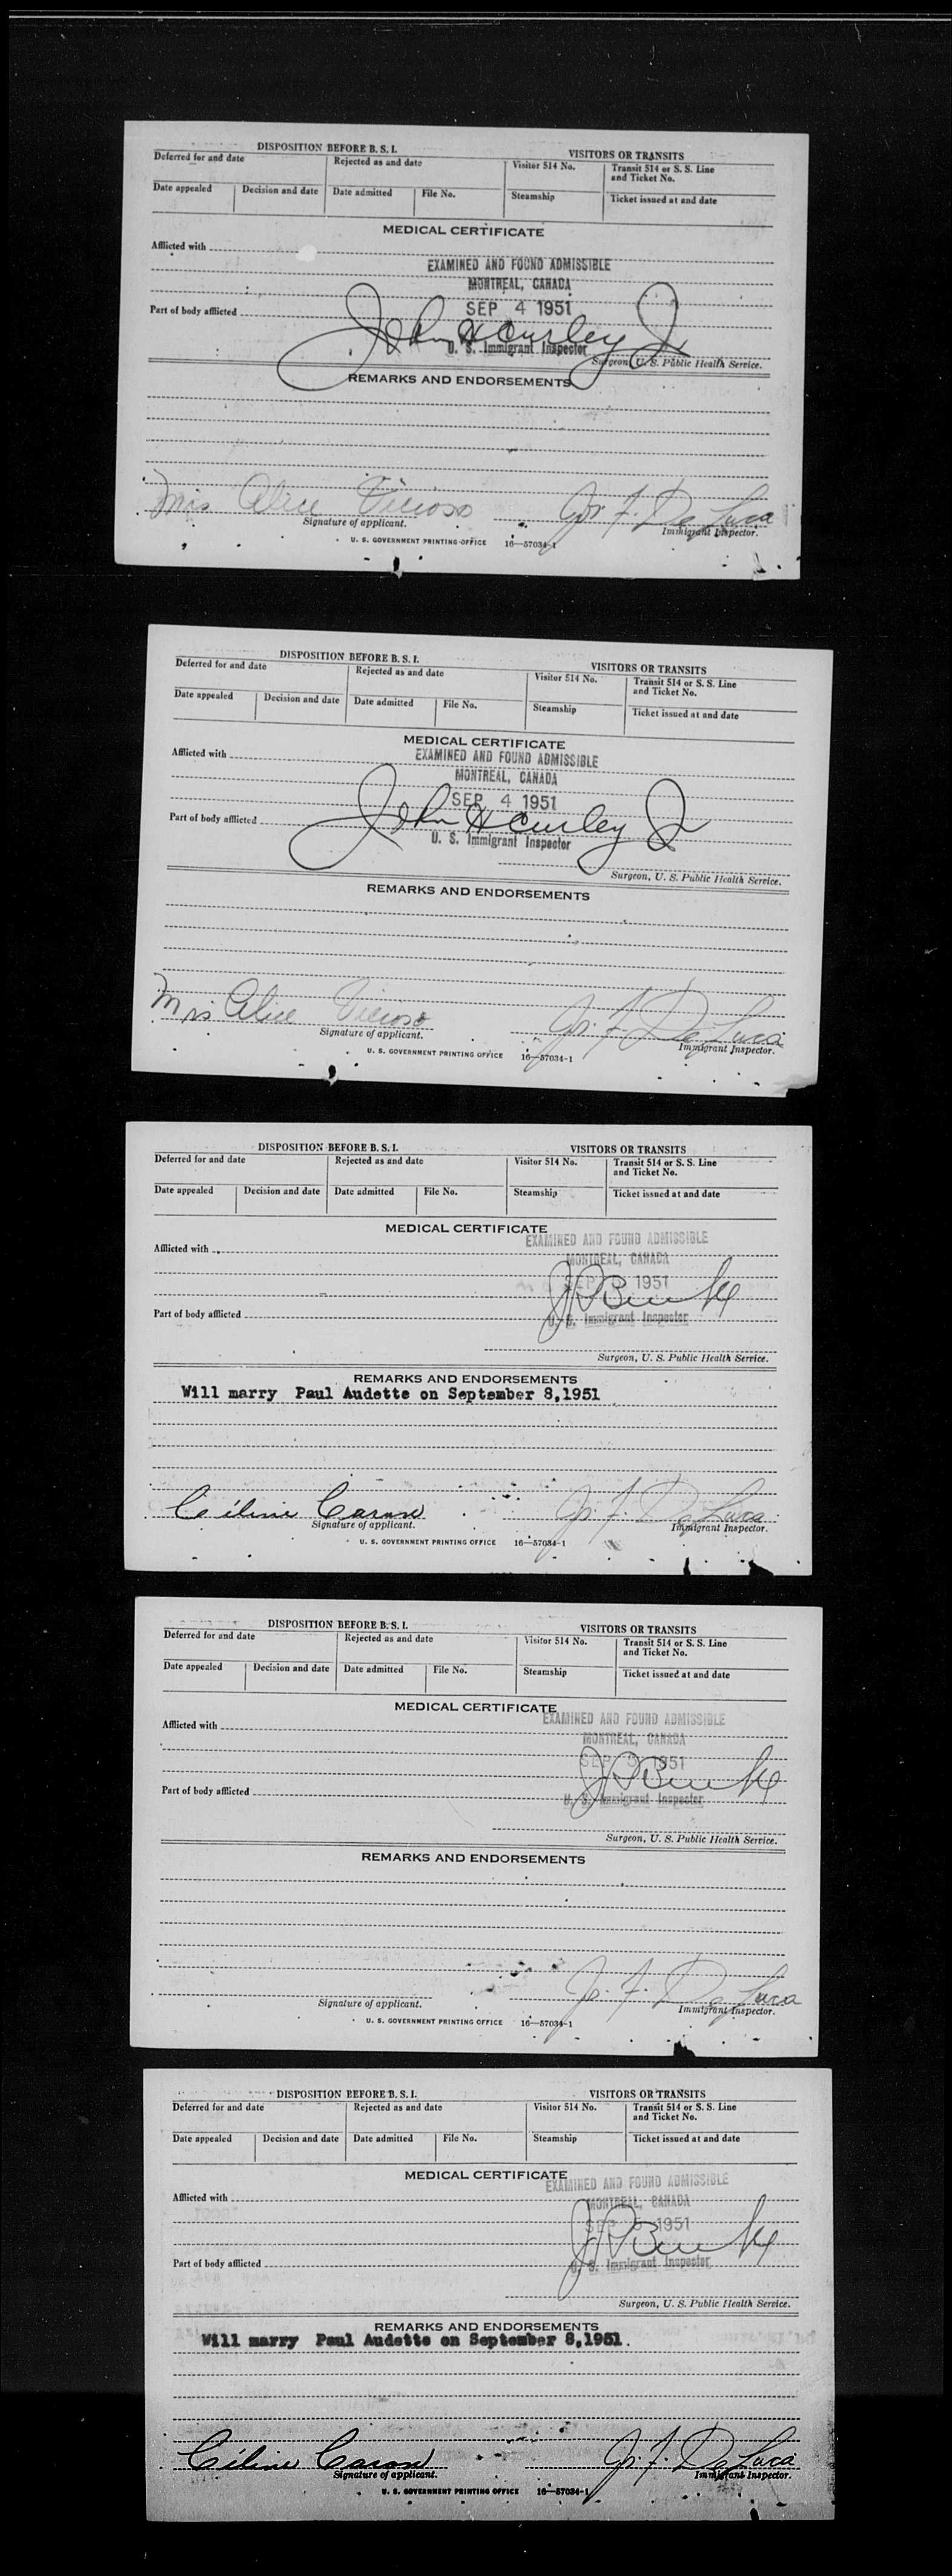 DISPOSITION BEFORE B. S. I. VISITORS OR TRANSITS
Deferred for and date Rejected as and date Visitor 514 No. Transit 514 or S. S. Line and Ticket No.
Date appealed Decision and date Date admitted File No. Steamship Ticket issued at and date
MEDICAL CERTIFICATE
Afflicted with
EXAMINED AND FOUND ADMISSIBLE
MONTREAL, CANADA
SEP 4 1951
Part of body afflicted
John H Curley Jr
U. S. Immigrant Inspector
Surgeon, U. S. Public Health Service.
REMARKS AND ENDORSEMENTS
Mrs Alice Vicioso Jos. F. De Luca
Signature of applicant. Immigrant Inspector.
U. S. GOVERNMENT PRINTING OFFICE 16—57034-1
DISPOSITION BEFORE B. S. I. VISITORS OR TRANSITS
Deferred for and date Rejected as and date Visitor 514 No. Transit 514 or S. S. Line and Ticket No.
Date appealed Decision and date Date admitted File No. Steamship Ticket issued at and date
MEDICAL CERTIFICATE
Afflicted with
EXAMINED AND FOUND ADMISSIBLE
MONTREAL, CANADA
SEP 4 1951
Part of body afflicted
John H Curley Jr
U. S. Immigrant Inspector
Surgeon, U. S. Public Health Service.
REMARKS AND ENDORSEMENTS
Mrs Alice Vicioso Jos. F. De Luca
Signature of applicant. Immigrant Inspector.
U. S. GOVERNMENT PRINTING OFFICE 16—57034-1
DISPOSITION BEFORE B. S. I. VISITORS OR TRANSITS
Deferred for and date Rejected as and date Visitor 514 No. Transit 514 or S. S. Line and Ticket No.
Date appealed Decision and date Date admitted File No. Steamship Ticket issued at and date
MEDICAL CERTIFICATE
EXAMINED AND FOUND ADMISSIBLE
Afflicted with
MONTREAL, CANADA
SEP 1951
Part of body afflicted
U. S. Immigrant Inspector
Surgeon, U. S. Public Health Service.
REMARKS AND ENDORSEMENTS
Will marry Paul Audette on September 8,1951
Céline Caron Jos. F. De Luca
Signature of applicant. Immigrant Inspector.
U. S. GOVERNMENT PRINTING OFFICE 16—57034-1
DISPOSITION BEFORE B. S. I. VISITORS OR TRANSITS
Deferred for and date Rejected as and date Visitor 514 No. Transit 514 or S. S. Line and Ticket No.
Date appealed Decision and date Date admitted File No. Steamship Ticket issued at and date
MEDICAL CERTIFICATE
EXAMINED AND FOUND ADMISSIBLE
Afflicted with
MONTREAL, CANADA
SEP 1951
Part of body afflicted
U. S. Immigrant Inspector
Surgeon, U. S. Public Health Service.
REMARKS AND ENDORSEMENTS
Jos. F. De Luca
Signature of applicant. Immigrant Inspector.
U. S. GOVERNMENT PRINTING OFFICE 16—57034-1
DISPOSITION BEFORE B. S. I. VISITORS OR TRANSITS
Deferred for and date Rejected as and date Visitor 514 No. Transit 514 or S. S. Line and Ticket No.
Date appealed Decision and date Date admitted File No. Steamship Ticket issued at and date
MEDICAL CERTIFICATE
EXAMINED AND FOUND ADMISSIBLE
Afflicted with
MONTREAL, CANADA
SEP 1951
Part of body afflicted
U. S. Immigrant Inspector
Surgeon, U. S. Public Health Service.
REMARKS AND ENDORSEMENTS
Will marry Paul Audette on September 8,1951.
Céline Caron Jos. F. De Luca
Signature of applicant. Immigrant Inspector.
U. S. GOVERNMENT PRINTING OFFICE 16—57034-1